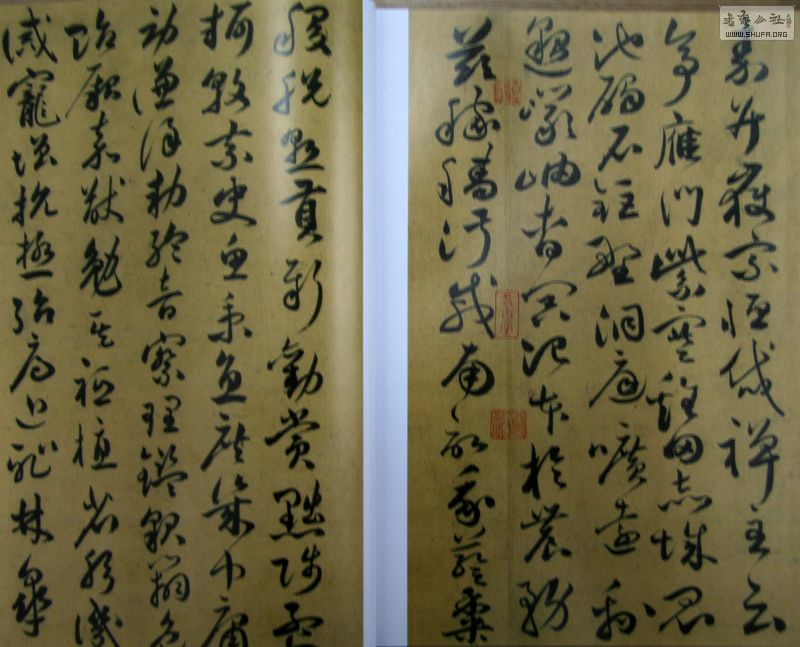 书艺公社
WWW.SHUFA.ORG
秦并嶽宗恒岱禪主云
亭雁門紫塞雞田赤城昆
池碣石鉅野洞庭曠遠綿
邈巖岫杳冥治本於農務
茲稼穡俶載南畝我藝黍
稷稅熟貢新勸賞黜陟孟
軻敦素史魚秉直庶幾中庸
勞謙謹敕聆音察理鑑貌辨色
貽厥嘉猷勉其祗植省躬譏
誡寵增抗極殆辱近恥林皋